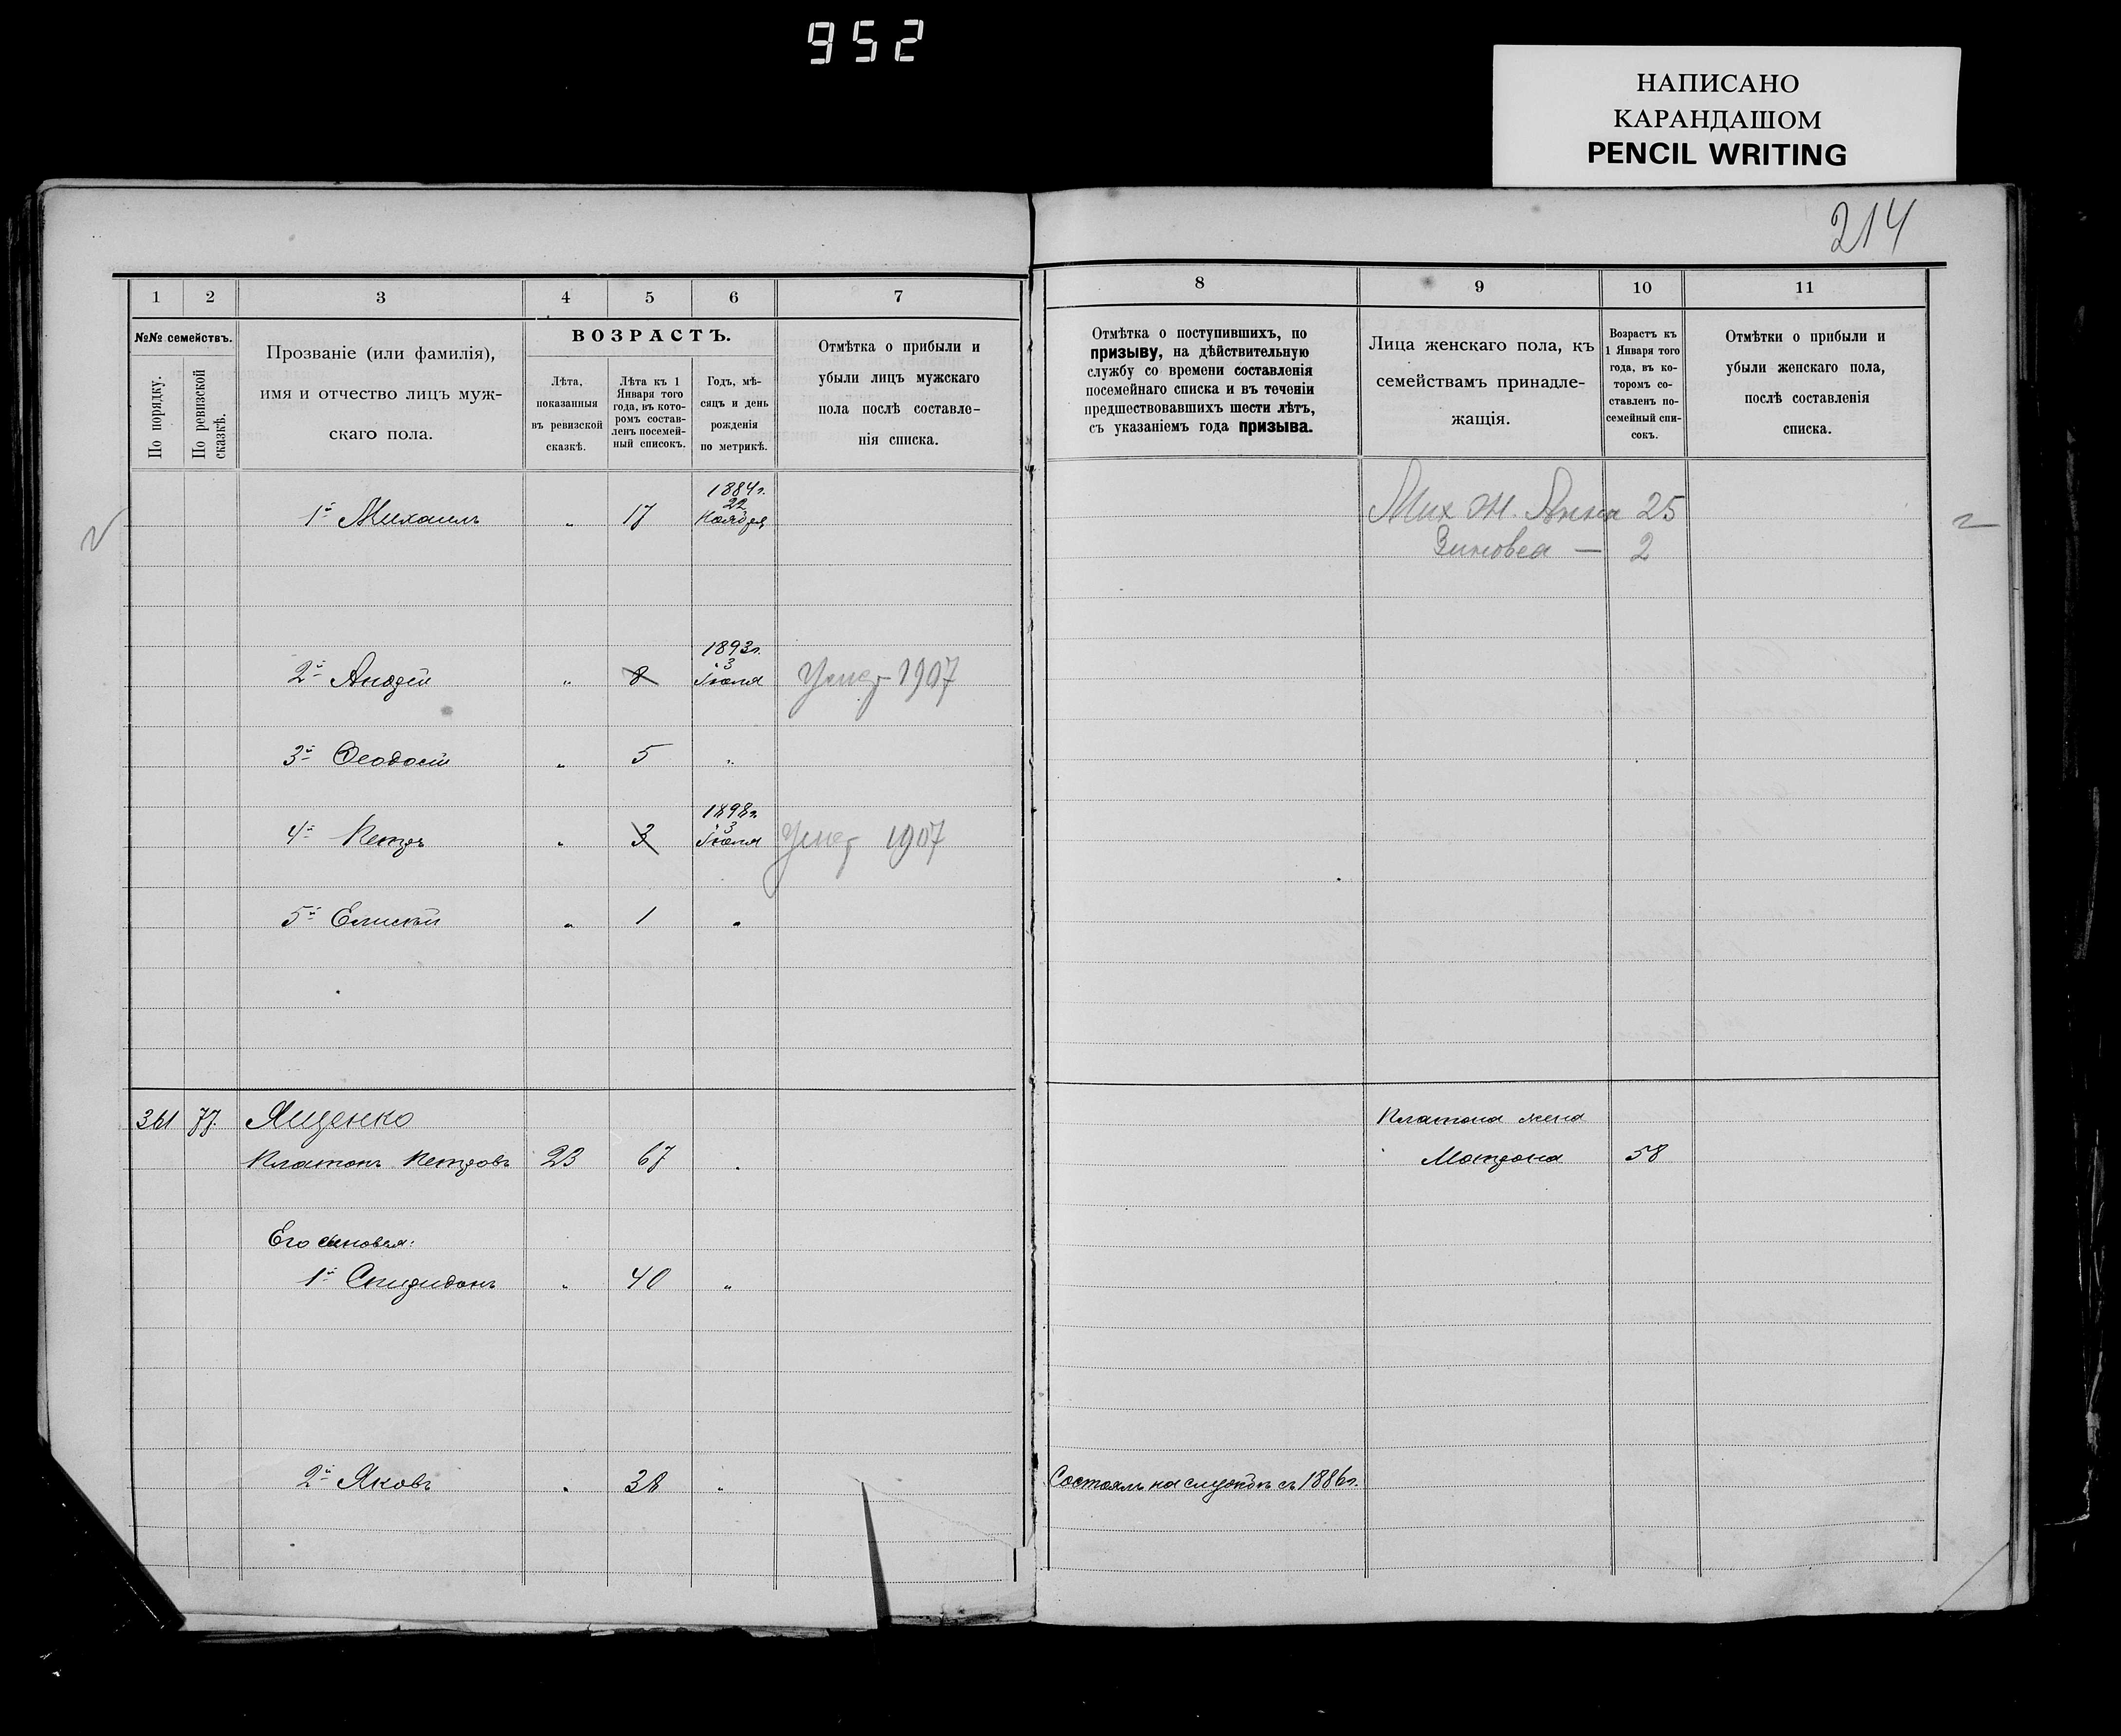 952
НАПИСАНО
КАРАНДАШОМ
PENCIL WRITING
214
1 2 3 4 5 6 7
№№ семействъ.
По порядку.
По ревизской сказкѣ.
Прозваніе (или фамилія),
имя и отчество лицъ муж-
скаго пола.
ВОЗРАСТЪ.
Лѣта,
показанныя
въ ревизской
сказкѣ.
Лѣта къ 1
Января того
года, въ кото-
ромъ состав-
ленъ посемей-
ный списокъ.
Годъ, мѣ-
сяцъ и день
рожденія
по метрикѣ.
Отмѣтка о прибыли и
убыли лицъ мужскаго
пола послѣ составле-
нія списка.
8 9 10 11
Отмѣтка о поступившихъ, по
призыву, на дѣйствительную
службу со времени составленія
посемейнаго списка и въ теченіи
предшествовавшихъ шести лѣтъ,
съ указаніемъ года призыва.
Лица женскаго пола, къ
семействамъ принадле-
жащія.
Возрастъ къ
1 Января того
года, въ ко-
торомъ со-
ставленъ по-
семейный спи-
сокъ.
Отмѣтки о прибыли и
убыли женскаго пола,
послѣ составленія
списка.
1884г.
22
1й Михаилъ " 17 Ноября
Мих ж. Анна 25
Зиновея — 2
1893г.
3
2й Андрей " 8 Іюля Умер 1907
3й Феодосій " 5 "
1898г.
3
4й Петръ " 3 Іюля Умер 1907
5й Елисѣй " 1 "
361 77. Ященко
Платонъ Петровъ 23 67 "
Платона жена
Матрона 58
Его сыновья:
1й Спиридонъ " 40 "
2й Яковъ " 38 "
Состоялъ на службѣ съ 1886г.